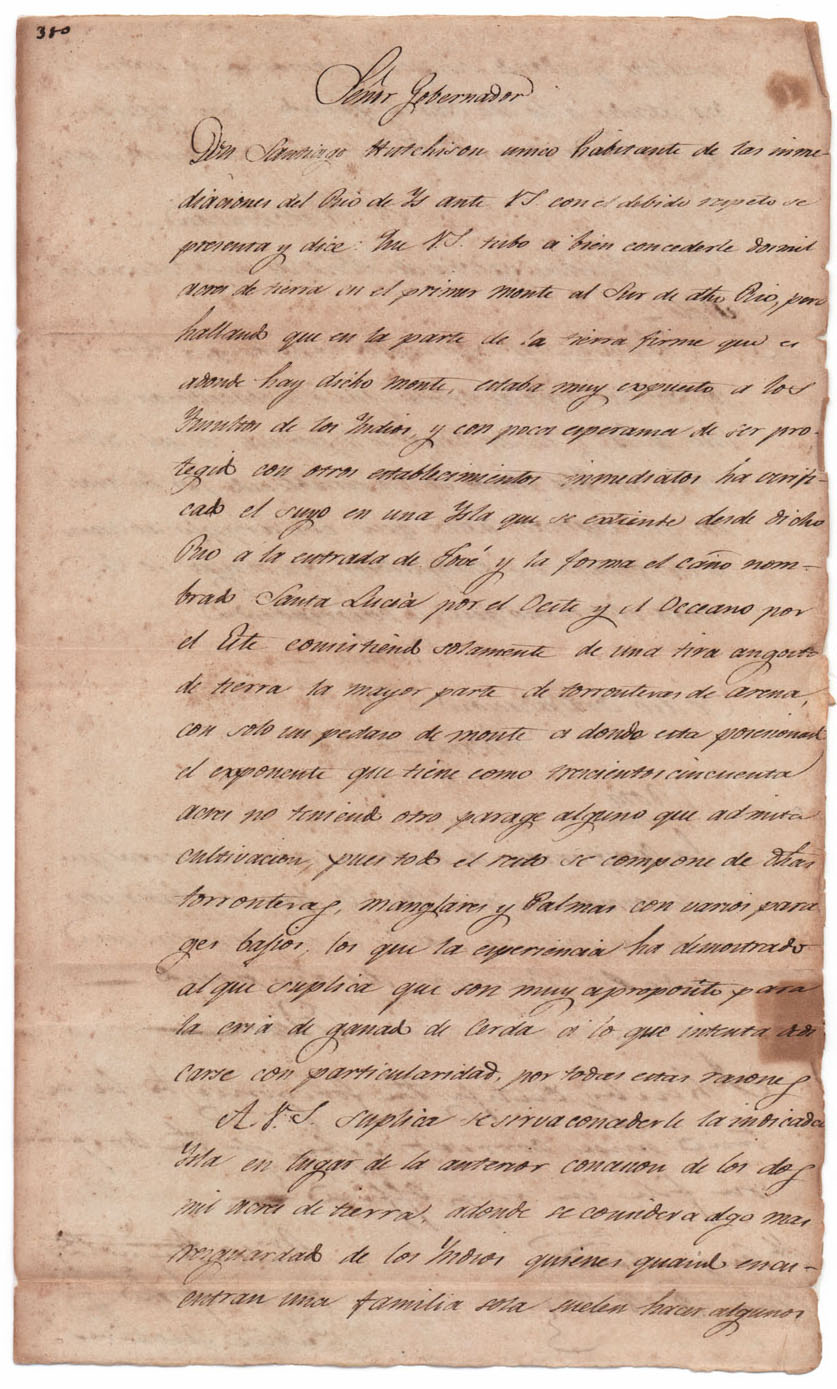 350
Señor Gobernador
Don Santiago Hutchison unico habitante de las inme-
diaciones del Rio de Ys ante VS. con el debido respeto se
presenta y dice: Que V.S. tubo a bien concederle dosmil
acres de tierra en el primer monte al Sur de dho Rio, pero
halland que en la parte de la tierra firme que es
adonde hay dicho monte, estaba muy expuesto a los
Ynsultos de los Yndios, y con pocas esperansas de ser pro-
tegido con otros establecimientos inmediatos ha verifi-
cado el suyo en una Ysla que se extiente desde dicho
Rio á la entrada de Jové y la forma el caño nom-
brado Santa Lucia por el Oeste y el Occeano por
el Este consistiend solamente de una tira angosta
de tierra la mayor parte de torronteras de Arena,
con solo un pedaso de monte a donde esta posesionad
el exponente que tiene como trescientos cincuenta
acres no teniend otro parage alguno que admita
cultivacion, pues todo el resto se compone de dhas
torronteras, manglares y Palmas con varios para
ges bajios, los que la esperiencia ha demostrado
al que suplica que son muy aproposito para
la cria de ganad de Cerda á lo que intenta dedi
carse con particularidad, por todas estas rasones
A.V.S. suplica se sirva concederle la indicada
Ysla en lugar de la anterior concecion de los dos
mil acres de tierra, adonde se considera algo mas
resguardad de los Yndios quienes quand encu-
entran una familia sola suelen hacer algunos